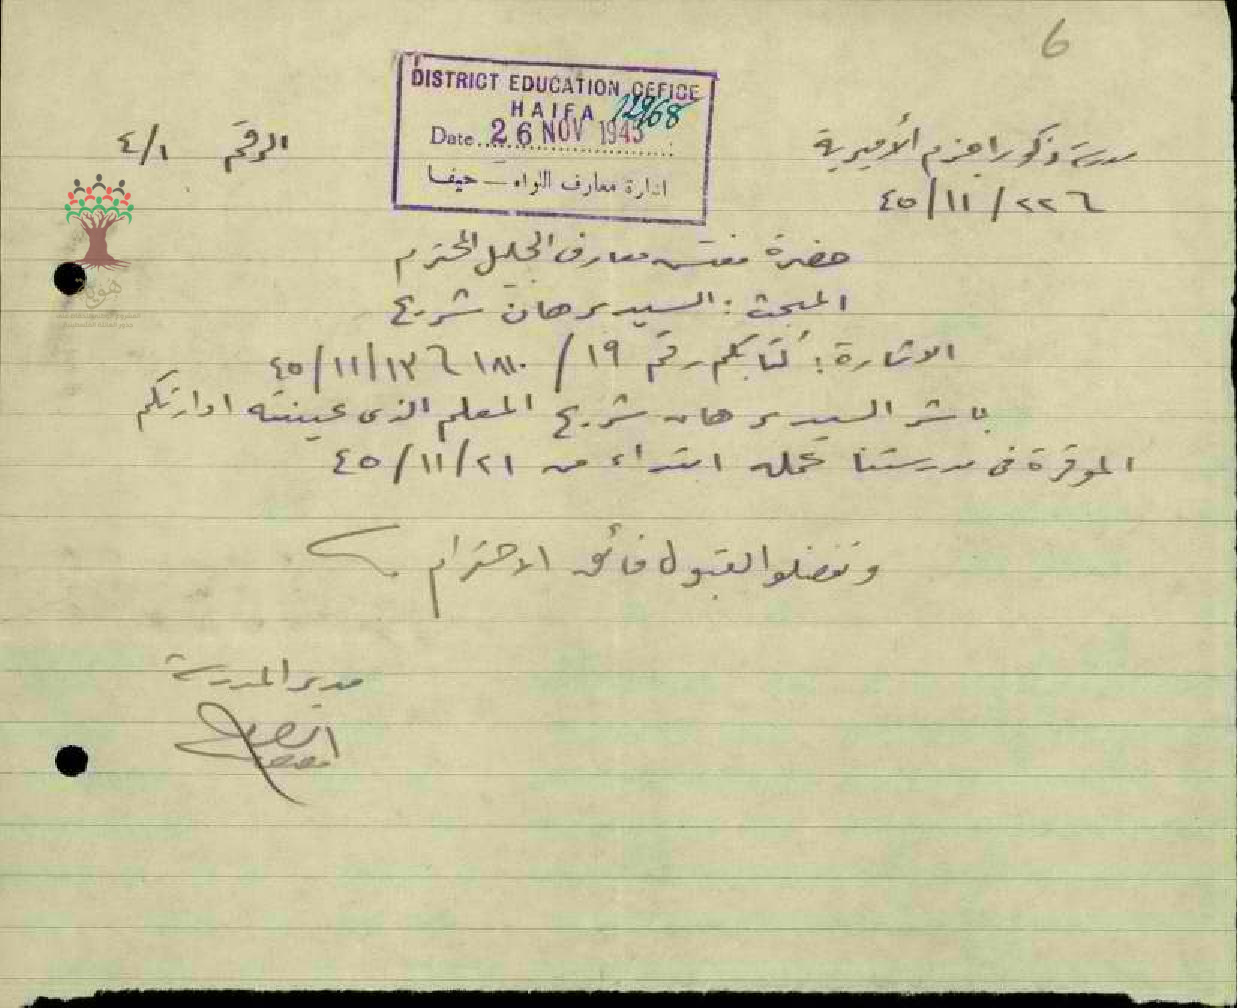 6
DISTRICT EDUCATION OFFICE
HAIFA 12968
Date 26 NOV 1945
ادارة معارف اللواء — حيفا
مدرسة ذكور اجزم الأميرية
الرقم ٤/١
٤٥/١١/٢٢
حضرة مفتش معارف الجليل المحترم
المبحث : السيد برهان شريح
الاشارة : كتابكم رقم ١٩/ ٤٥/١١/١٣
باشر السيد برهان شريح المعلم الذي عينته ادارتكم
الموقرة في مدرستنا عمله ابتداء من ٤٥/١١/٢١
وتفضلوا بقبول فائق الاحترام
مدير المدرسة